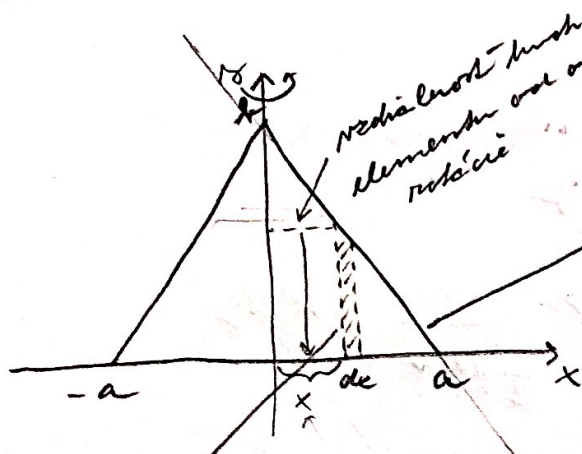 vzdialenosť hmot
elementu od o
rotácie
b
-a
x
dx
a
x